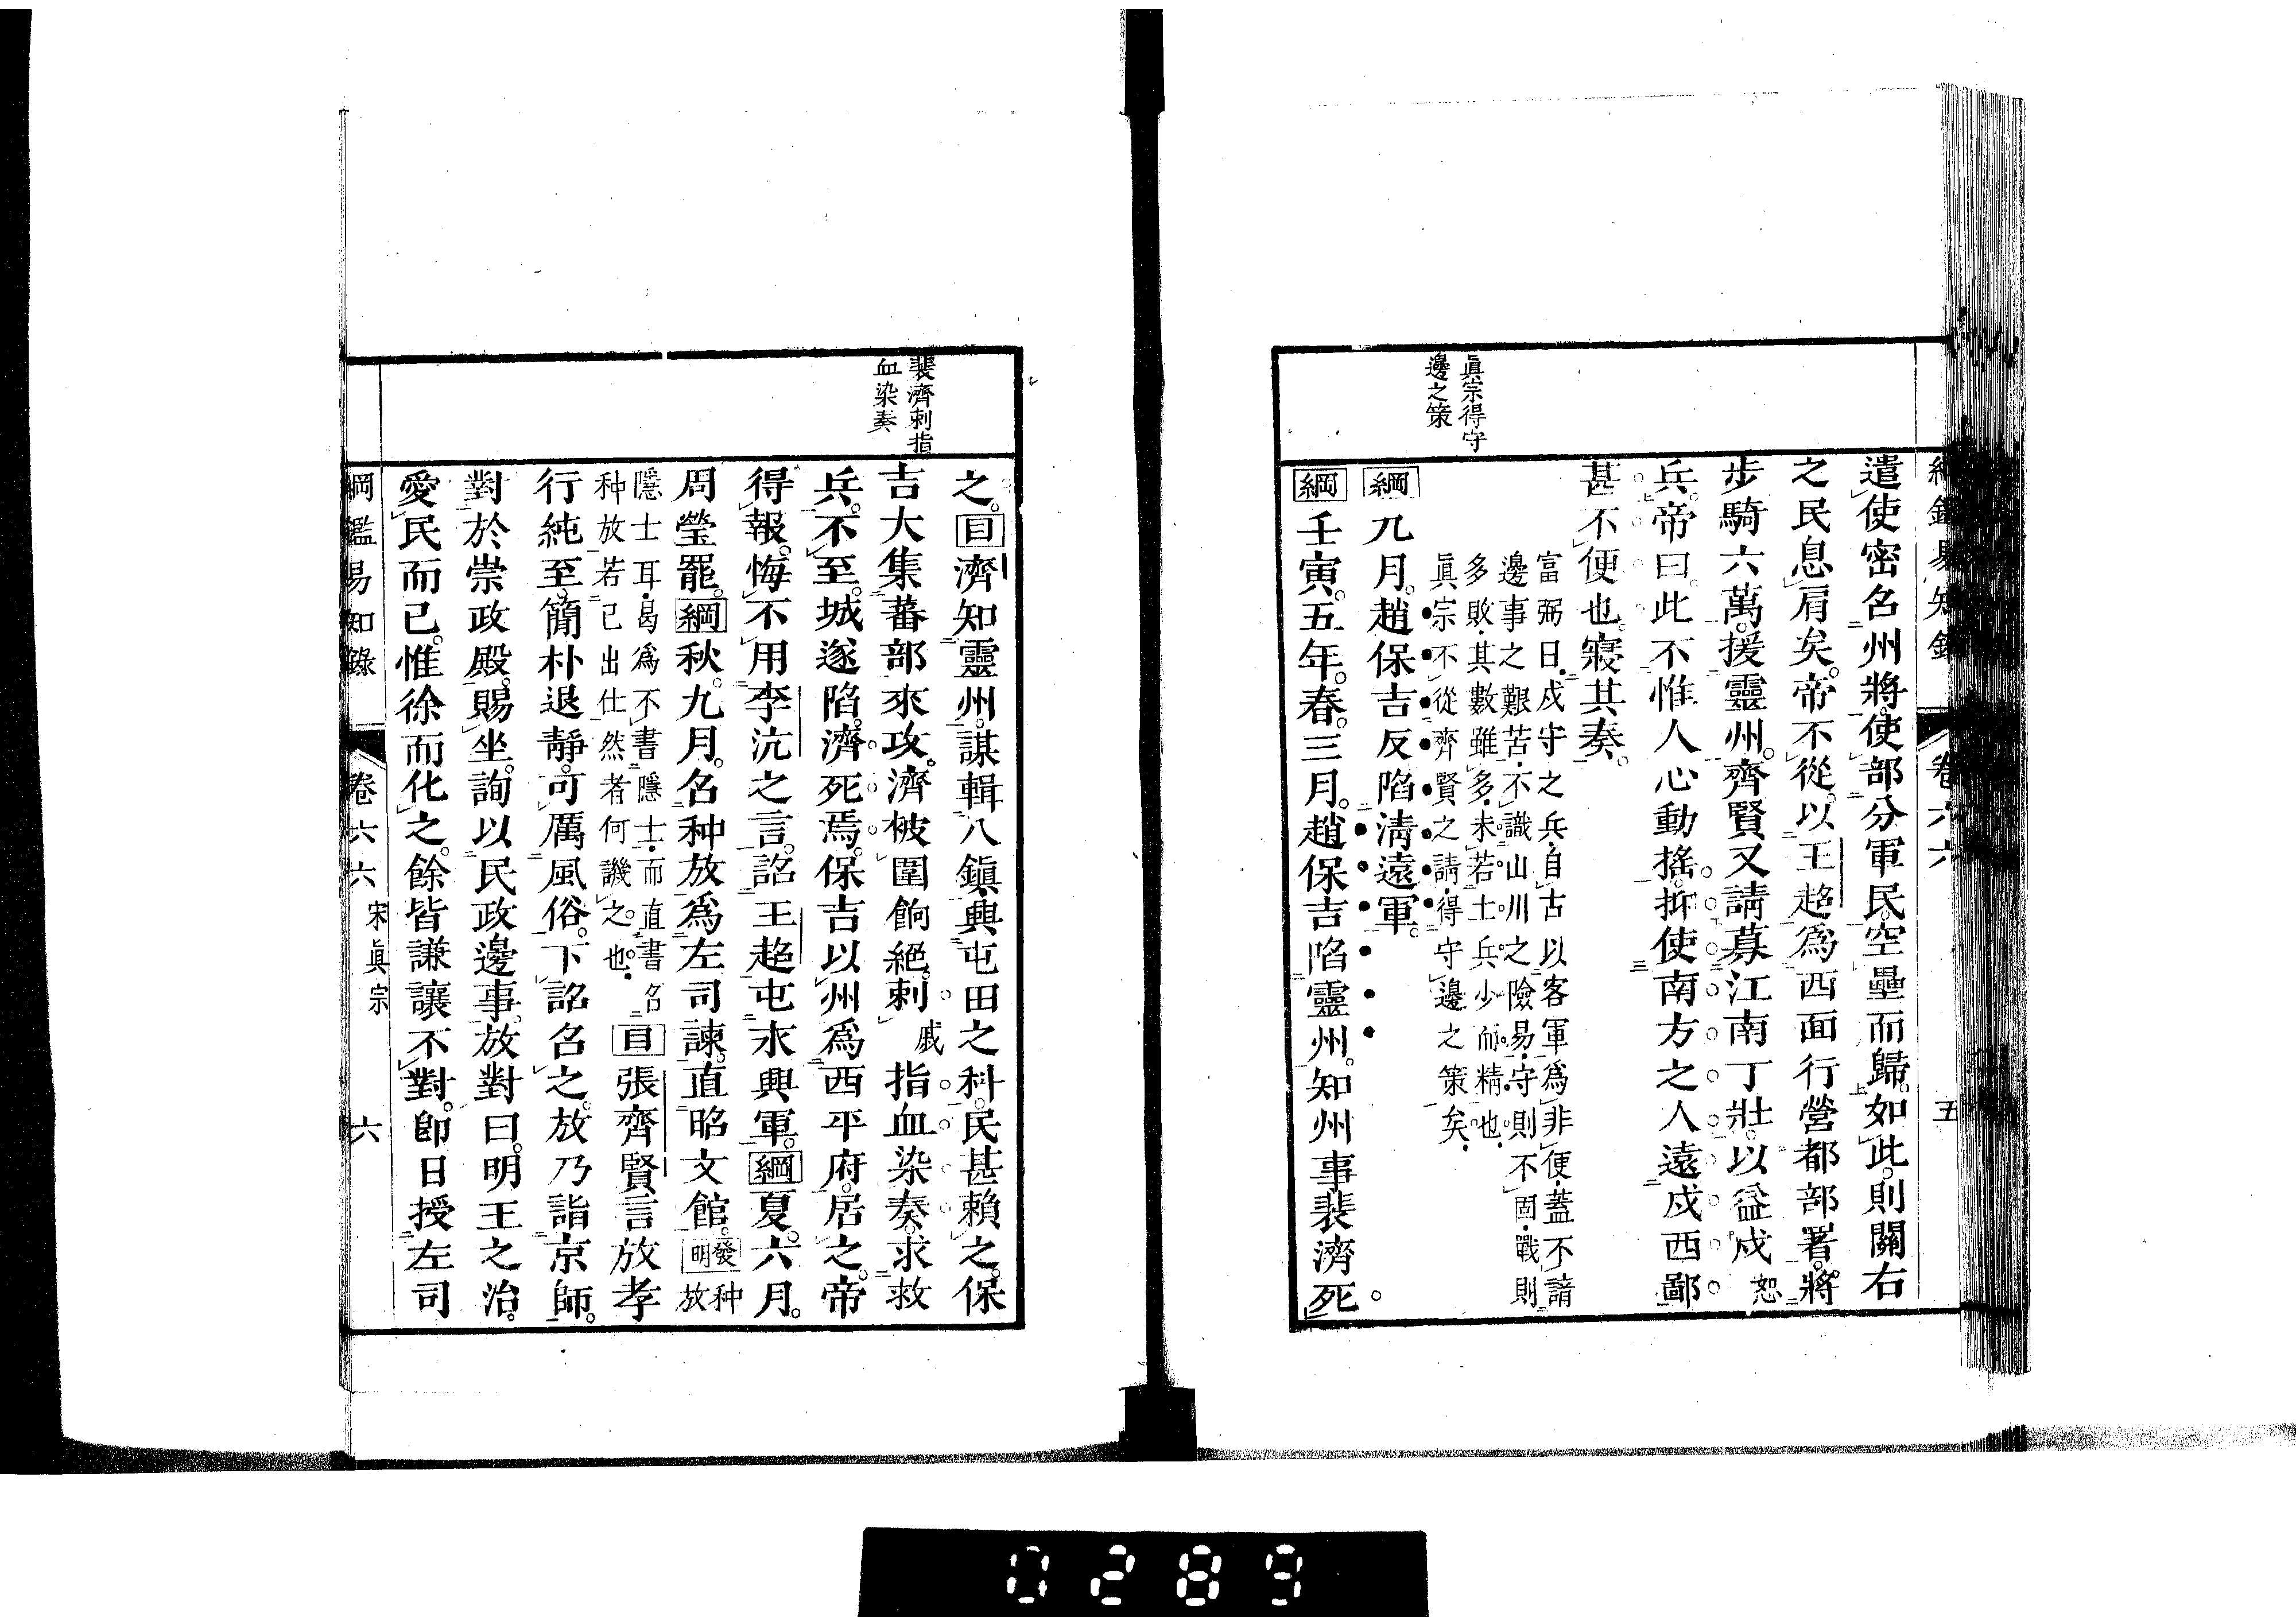 眞宗得守
邊之策
遣使密召州將使部分軍民空壘而歸如此則關右
之民息肩矣帝不從以王超爲西面行營都部署將
步騎六萬援靈州齊賢又請募江南丁壯以益戍恕
兵帝曰此不惟人心動搖抑使南方之人遠戍西鄙
甚不便也寢其奏
富弼曰戍守之兵自古以客軍爲非便蓋不諳
邊事之艱苦不識山川之險易守則不固戰則
多敗其數雖多未若土兵少而精也
眞宗不從齊賢之請得守邊之策矣
綱九月趙保吉反陷淸遠軍
綱壬寅五年春三月趙保吉陷靈州知州事裴濟死
裴濟刺指
血染奏
之目濟知靈州謀輯八鎭興屯田之科民甚賴之保
吉大集蕃部來攻濟被圍餉絕刺戚指血染奏求救
兵不至城遂陷濟死焉保吉以州爲西平府居之帝
得報悔不用李沆之言詔王超屯永興軍綱夏六月
周瑩罷綱秋九月召种放爲左司諫直昭文館發明种放
隱士耳曷爲不書隱士而直書名
种放若已出仕然者何譏之也目張齊賢言放孝
行純至簡朴退靜可厲風俗下詔召之放乃詣京師
對於崇政殿賜坐詢以民政邊事放對曰明王之治
愛民而已惟徐而化之餘皆謙讓不對卽日授左司
綱鑑易知錄 卷六六 宋眞宗 六